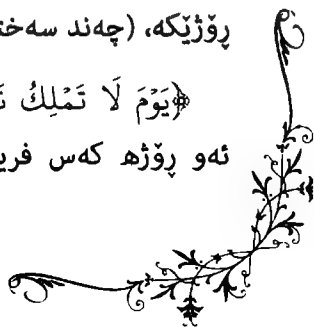 ڕۆژێکە، (چەند سەخت
﴿يَوْمَ لَا تَمْلِكُ
ئەو ڕۆژە کەس فریا